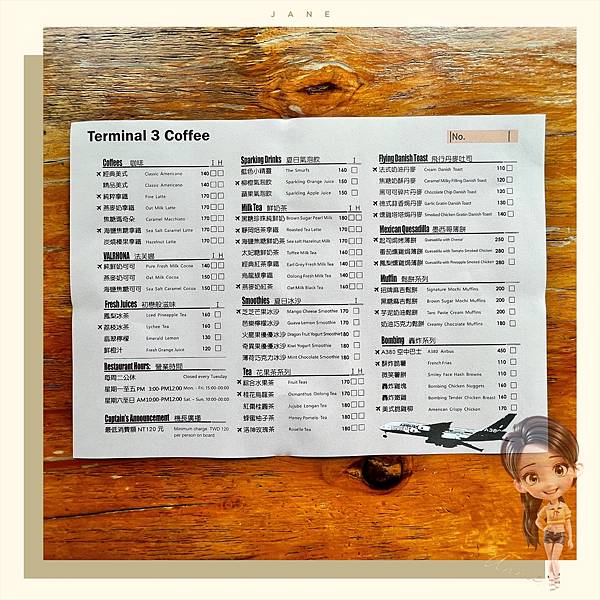 JANE
Terminal 3 Coffee
No.
Coffees 咖啡 I H
經典美式 Classic Americano 140
精品美式 Classic Americano 170
純粹拿鐵 Fine Latte 170
燕麥奶拿鐵 Oat Milk Latte 170
焦糖瑪奇朵 Caramel Macchiato 170
海鹽焦糖拿鐵 Sea Salt Caramel Latte 170
炭燒榛果拿鐵 Hazelnut Latte 170
VALRHONA 法芙娜 I H
純鮮奶可可 Pure Fresh Milk Cocoa 140
燕麥奶可可 Oat Milk Cocoa 150
海鹽焦鹽可可 Sea Salt Caramel Cocoa 150
Fresh Juices 初戀般滋味 I
鳳梨冰茶 Iced Pineapple Tea 160
荔枝冰茶 Lychee Tea 160
翡翠檸檬 Emerald Lemon 130
鮮橙汁 Fresh Orange Juice 120
Restaurant Hours: 營業時間
每周二公休 Closed every Tuesday
星期一至五 PM 3:00-PM12:00 Mon. - Fri. 15:00-00:00
星期六至日 AM10:00-PM12:00 Sat. - Sun. 10:00-00:00
Captain's Announcement 機長廣播
最低消費額 NT120 元 Minimum charge TWD 120
per person on board
Sparking Drinks 夏日氣泡飲 I
藍色小精靈 The Smurfs 160
柳橙氣泡飲 Sparkling Orange Juice 150
蘋果氣泡飲 Sparkling Apple Juice 150
Milk Tea 鮮奶茶 I H
黑糖珍珠純鮮奶 Brown Sugar Pearl Milk 180
靜岡焙茶拿鐵 Roasted Tea Latte 170
海鹽焦糖鮮奶茶 Sea salt Hazelnut Milk 170
太妃糖鮮奶茶 Toffee Milk Tea 160
經典紅茶拿鐵 Earl Grey Fresh Milk Tea 160
烏龍綠拿鐵 Oolong Fresh Milk Tea 160
燕麥奶紅茶 Oat Milk Black Tea 160
Smoothies 夏日冰沙 I
芝芝芒果冰沙 Mango Cheese Smoothie 170
芭樂檸檬冰沙 Guava Lemon Smoothie 170
火龍果優優冰沙 Dragon Fruit Yogurt Smoothie 180
奇異果優優冰沙 Kiwi Yogurt Smoothie 180
薄荷巧克力冰沙 Mint Chocolate Smoothie 180
Tea 花果茶系列 I H
綜合水果茶 Fruit Teas 170
桂花烏龍茶 Osmanthus Oolong Tea 160
紅棗桂圓茶 Jujube Longan Tea 160
蜂蜜柚子茶 Honey Pomelo Tea 160
洛神玫瑰茶 Roselle Tea 160
Flying Danish Toast 飛行丹麥吐司
法式奶油丹麥 Cream Danish Toast 110
焦糖奶酥丹麥 Caramel Milky Filling Danish Toast 120
黑可可碎片丹麥 Chocolate Chip Danish Toast 120
德式蒜香焗丹麥 Garlic Gratin Danish Toast 130
燻雞塔塔焗丹麥 Smoked Chicken Gratin Danish Toast 140
Mexican Quesadilla 墨西哥薄餅
起司焗烤薄餅 Quesadilla with Cheese 250
番茄燻雞焗薄餅 Quesadilla with Tomato Smoked Chicken 280
鳳梨燻雞焗薄餅 Quesadilla with Pineapple Smoked Chicken 280
Muffin 鬆餅系列
招牌麻吉鬆餅 Signature Mochi Muffins 200
黑糖麻吉鬆餅 Brown Sugar Mochi Muffins 200
芋泥奶油鬆餅 Taro Paste Cream Muffins 200
奶油巧克力鬆餅 Creamy Chocolate Muffins 180
Bombing 轟炸系列
A380 空中巴士 A380 Airbus 450
酥炸脆薯 French Fries 110
微笑薯餅 Smiley Face Hash Browns 110
轟炸雞塊 Bombing Chicken Nuggets 160
轟炸嫩雞 Bombing Tender Chicken Breast 160
美式脆雞柳 American Crispy Chicken 170